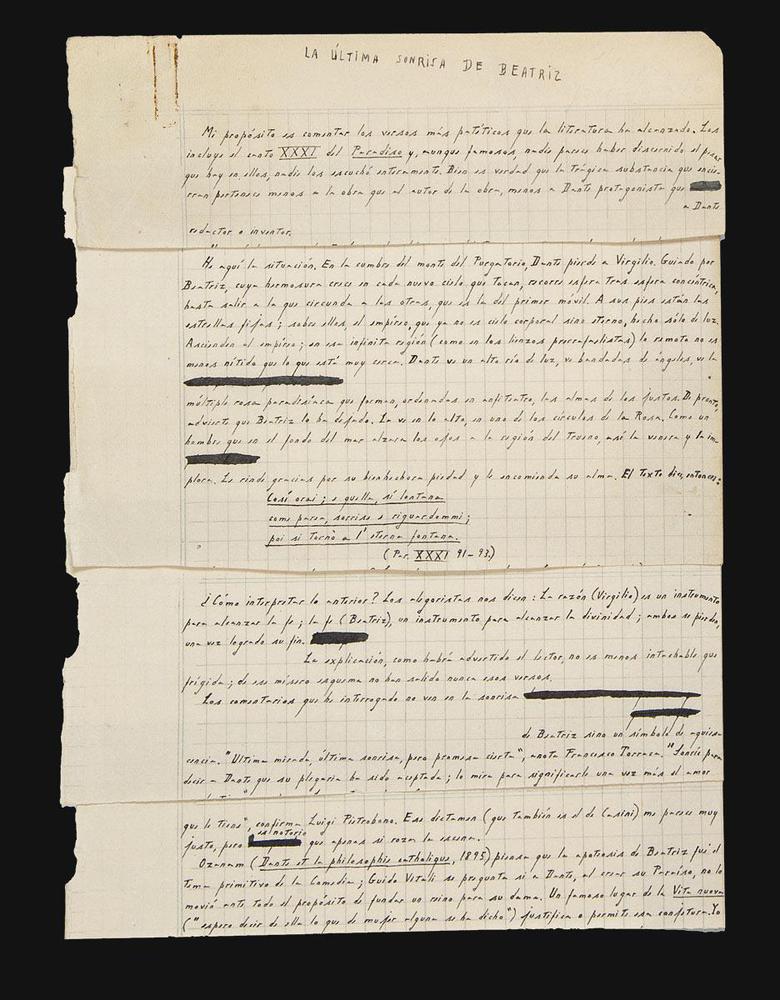 LA ÚLTIMA SONRISA DE BEATRIZ
Mi propósito es comentar los versos más patéticos que la literatura ha alcanzado. Los
incluye el canto XXXI del Paradiso y, aunque famosos, nadie parece haber discernido el pesar
que hay en ellos, nadie los escuchó enteramente. Bien es verdad que la trágica substancia que encie-
rran pertenece menos a la obra que al autor de la obra, menos a Dante protagonista que
a Dante
redactor o inventor.
He aquí la situación. En la cumbre del monte del Purgatorio, Dante pierde a Virgilio. Guiado por
Beatriz, cuya hermosura crece en cada nuevo cielo que tocan, recorre esfera tras esfera concéntrica,
hasta salir a la que circunda a las otras, que es la del primer móvil. A sus pies están las
estrellas fijas; sobre ellas, el empíreo, que ya no es cielo corporal sino eterno, hecho sólo de luz.
Ascienden al empíreo; en esa infinita región (como en los lienzos prerrafaelistas) lo remoto no es
menos nítido que lo que está muy cerca. Dante ve un alto río de luz, ve bandadas de ángeles, ve la
múltiple rosa paradisíaca que forman, ordenadas en anfiteatro, las almas de los justos. De pronto,
advierte que Beatriz lo ha dejado. La ve en lo alto, en uno de los círculos de la Rosa. Como un
hombre que en el fondo del mar alzara los ojos a la región del trueno, así la venera y la im-
plora. Le rinde gracias por su bienhechora piedad y le encomienda su alma. El texto dice, entonces:
Così orai; e quella, sì lontana
come parea, sorrise e riguardommi;
poi si tornò a l'eterna fontana.
(Par. XXXI 91-93)
¿Cómo interpretar lo anterior? Los alegoristas nos dicen: La razón (Virgilio) es un instrumento
para alcanzar la fe; la fe (Beatriz), un instrumento para alcanzar la divinidad; ambos se pierden,
una vez logrado su fin.
La explicación, como habrá advertido el lector, no es menos intachable que
frígida; de ese mísero esquema no han salido nunca esos versos.
Los comentarios que he interrogado no ven en la sonrisa
de Beatriz sino un símbolo de aquies-
cencia. "Ultima mirada, última sonrisa, pero promesa cierta", anota Francesco Torraca. "Sonríe para
decir a Dante que su plegaria ha sido aceptada; lo mira para significarle una vez más el amor
que le tiene", confirma Luigi Pietrobono. Ese dictamen (que también es el de Casini) me parece muy
justo, pero es notorio que apenas si roza la escena.
Ozanam (Dante et la philosophie catholique, 1895) piensa que la apoteosis de Beatriz fue el
tema primitivo de la Comedia; Guido Vitali se pregunta si a Dante, al crear su Paraíso, no lo
movió ante todo el propósito de fundar un reino para su dama. Un famoso lugar de la Vita nuova
("espero decir de ella lo que de mujer alguna se ha dicho") justifica o permite esa conjetura. Yo